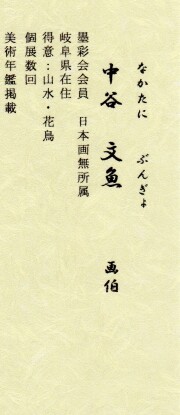 なかたに ぶんぎょ
中谷 文魚 画伯
墨彩会会員 日本画無所属
岐阜県在住
得意：山水・花鳥
個展数回
美術年鑑掲載